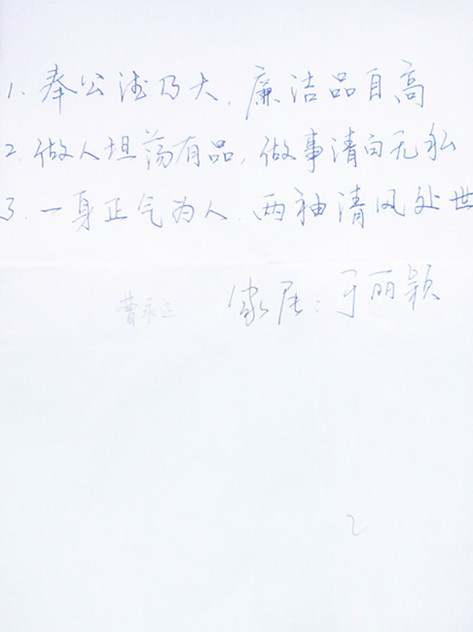 1. 奉公德乃大,廉洁品自高
2. 做人坦荡有品,做事清白无私
3. 一身正气为人,两袖清风处世
曹永正 家属:于丽颖
2